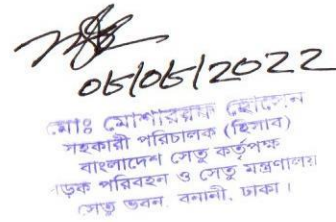 06/06/2022
মোঃ মোশাররফ হোসেন
সহকারী পরিচালক (হিসাব)
বাংলাদেশ সেতু কর্তৃপক্ষ
সড়ক পরিবহন ও সেতু মন্ত্রণালয়
সেতু ভবন, বনানী, ঢাকা।